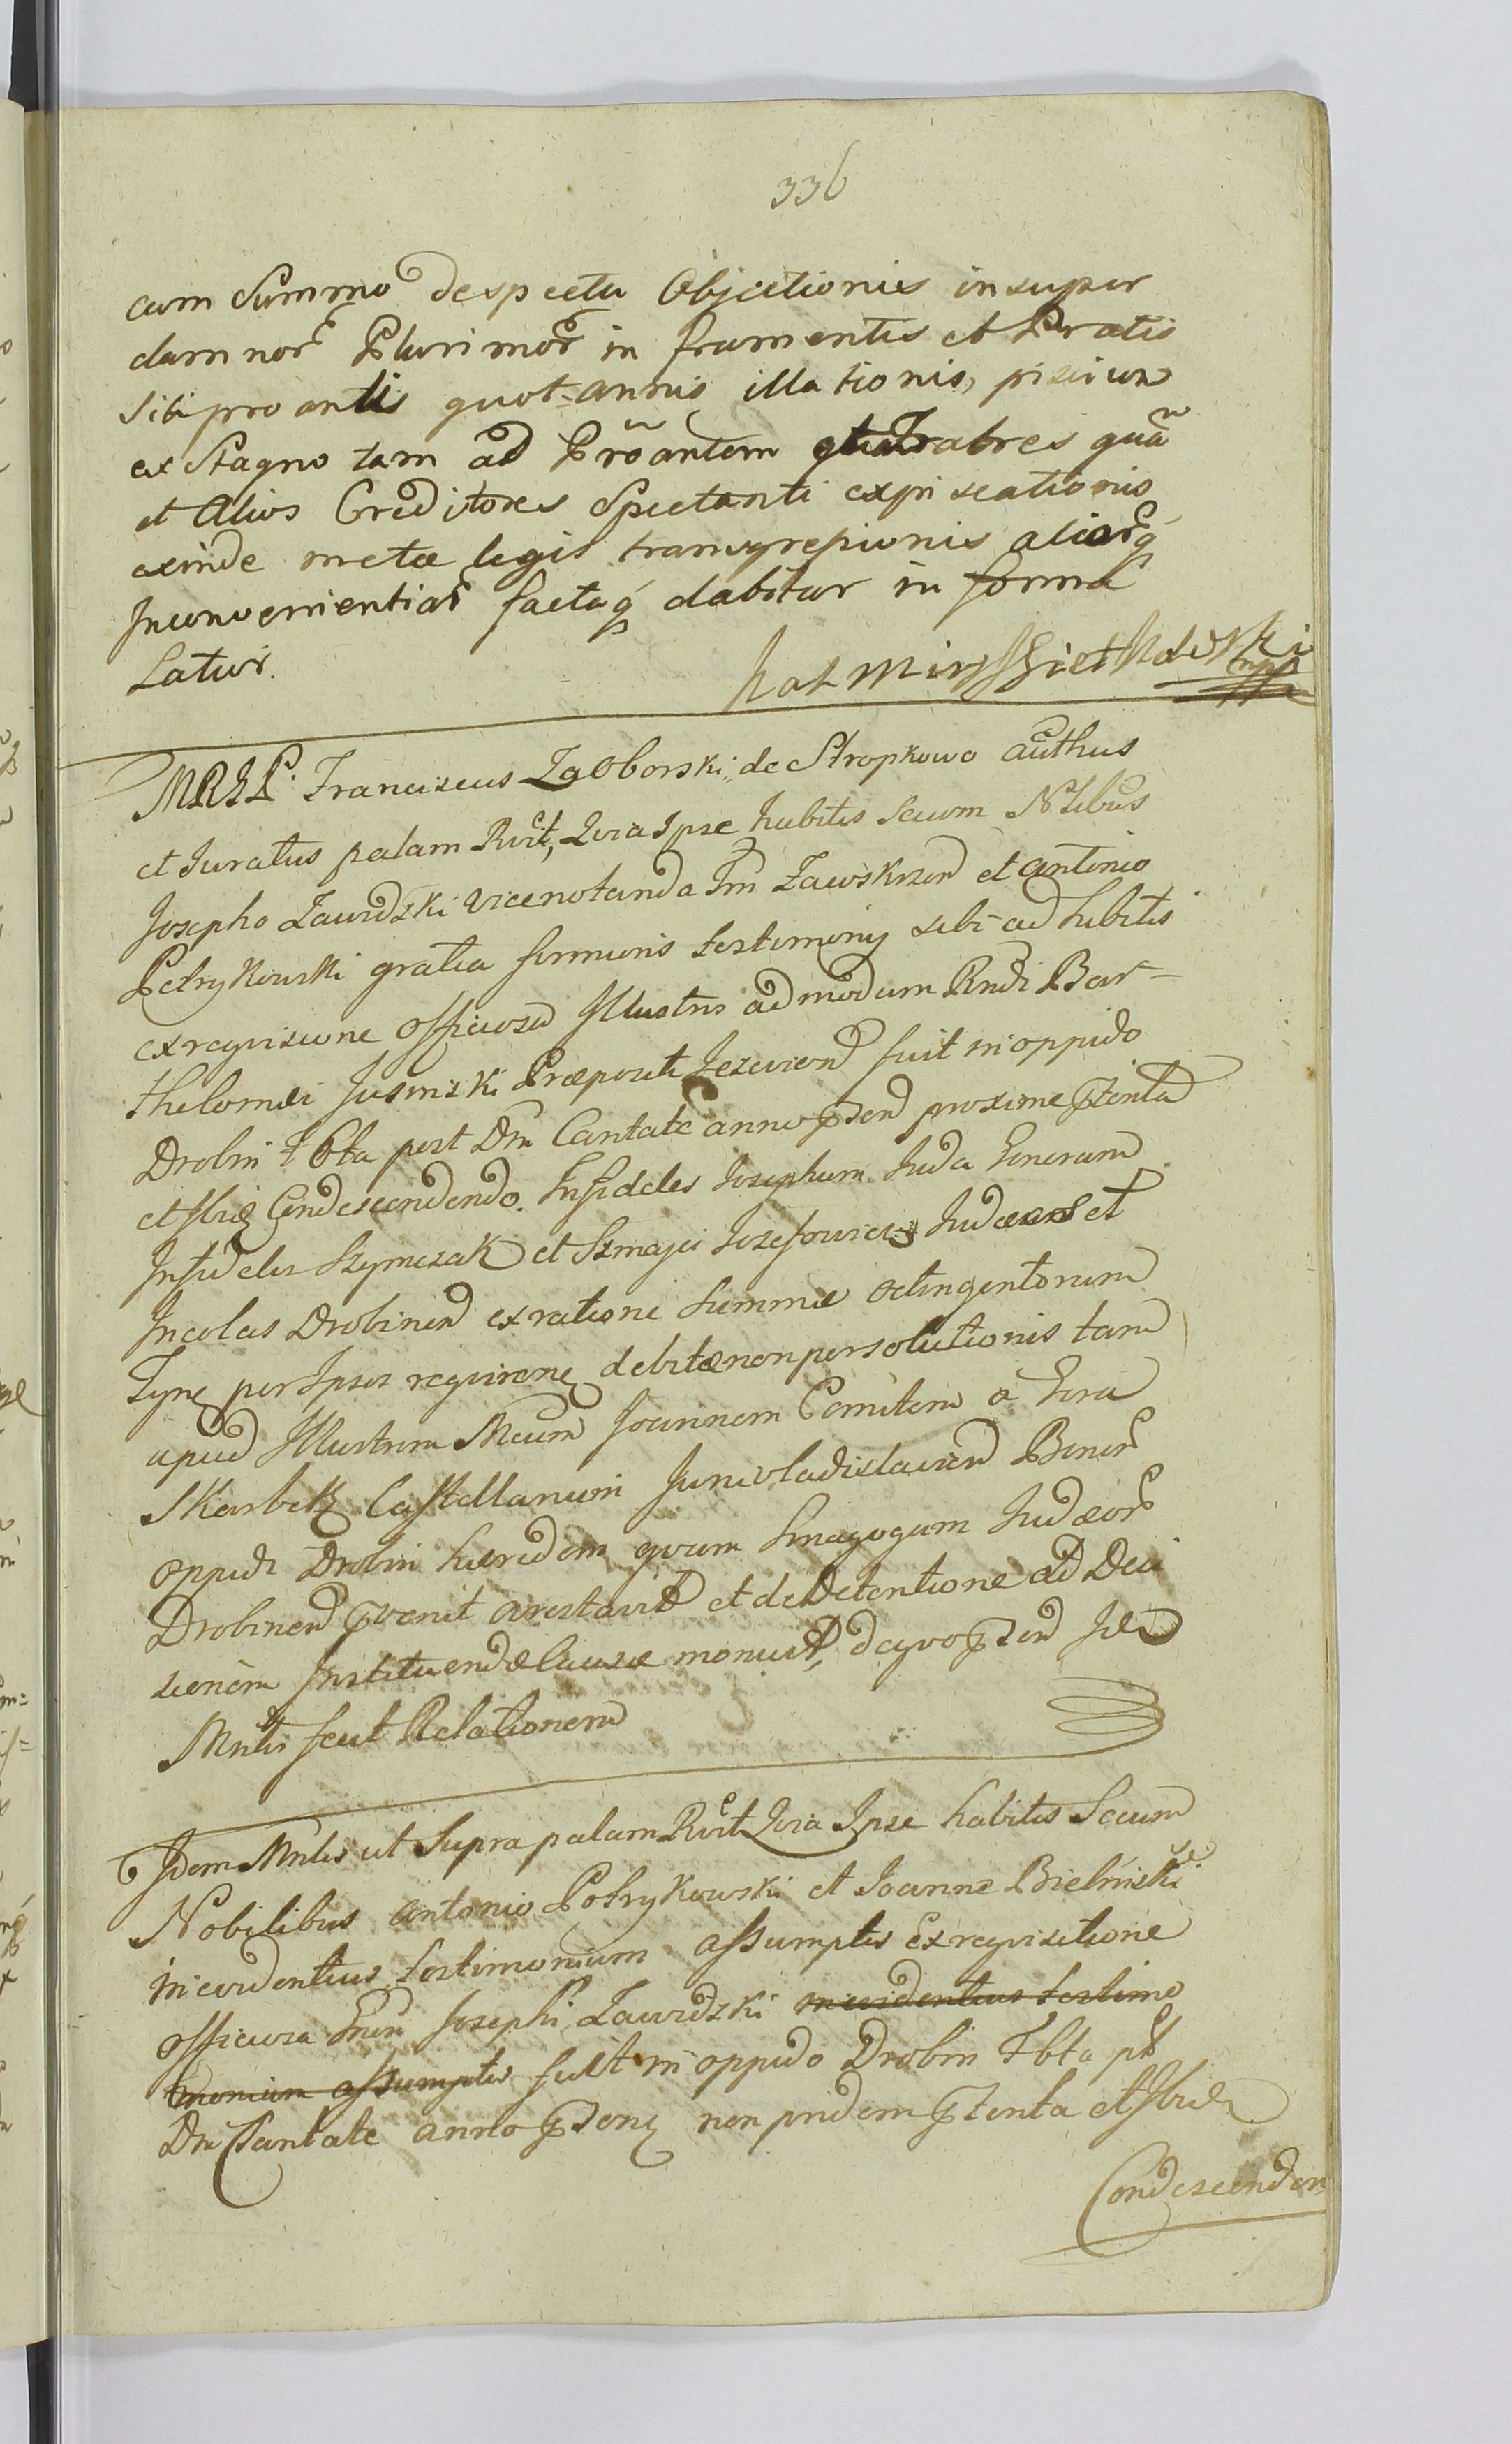 336
cum Summo despectu Objectionis insuper
damnor Plurimor in frumentis et Pratis
Sibi pro antis quot-annis illationis, piscium
ex Stagno tam ad Proantem fratres quam
et Alios Creditores Spectanti expiscationis
exinde metæ legis transgressionis aliorq
Inconvenientiar factaq dabitur in forma
Latiori.
MRGL Franciscus Zgoborski de Stropkowo authus
et Juratus palam Rvit, Quia Ipse habitis Secum Nlibus
Josepho Zawidzki vicenotanda Trri Zawskrzen et Antonio
Petrykowski gratia firmioris testimonij sibi adhibitis
ex reqvisicione officiosa Illustris admodum Rndi Bar-
tholomæi Jusinski Præpositi Jezewien fuit in oppido
Drobin fbta post Dm Cantate anno pzen proxime pzterita
et Ibiq Condescendendo Infideles Josephum Juda Generum
Infidelis Szymczak et Szmaja Jozefowicz Judæos et
Incolas Drobinen ex ratione Summæ octingentorum
Tynf per Ipsos reqvirenq debitæ non persolutionis tam
apud Illustrem Mcum Joannem Comitem a Gora
Skarbek Castellanum Junivladislavien Bonor
oppidi Drobin hæredem qvam Sinagogam Judæor
Drobinen pvenit arestavit et de Detentione ad Deci
sionem Instituendæ Causæ monuit, de qvo pzen Idem
Mntr fecit Relationem
Idem Mnlis ut Supra palam Rvit Quia Ipse habitis Secum
Nobilibus Antonio Potrykowski et Joanne Bielinski
in evidentius testimonium assumptis Ex reqvisitione
officiosa Gnen Josephi Zawidzki in evidentius testimo
monium assumptis fuit in oppido Drobin Fbta pt
Dm Cantate anno pzenq non pridem pzterita et Ibidem
Condescenden